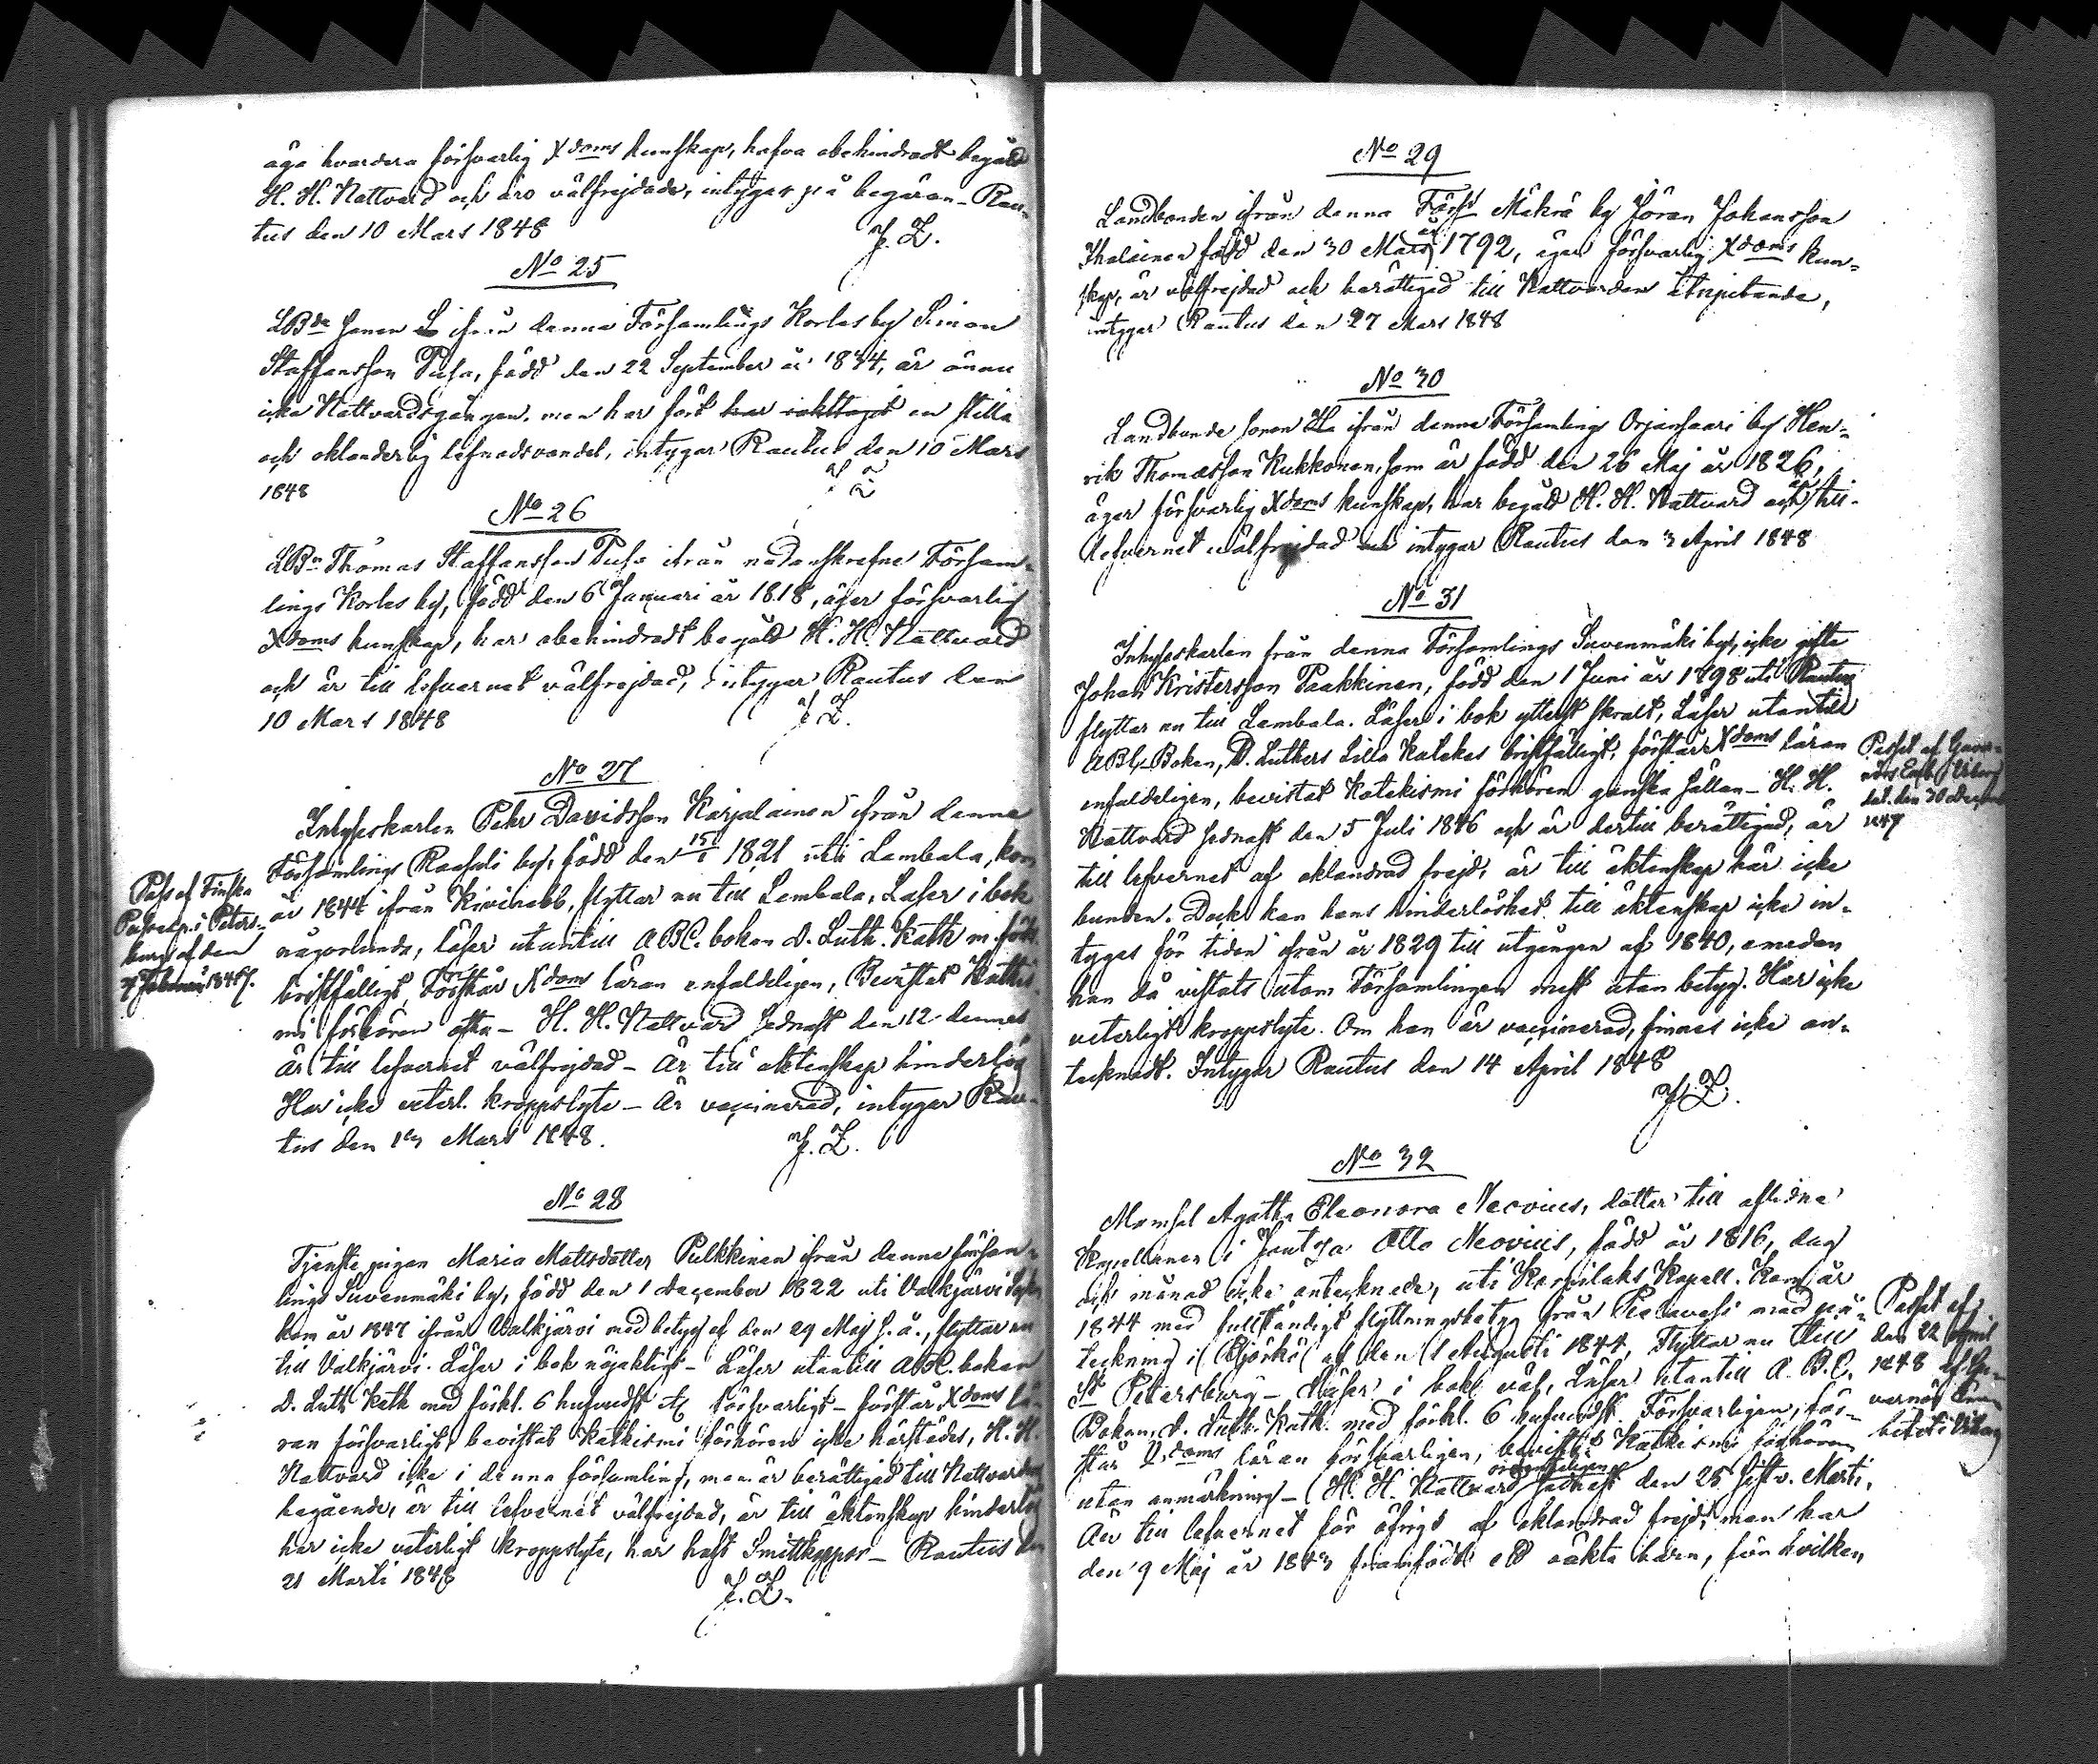 äga hvardera försvarlig Xdoms kunskap, hafva obehindradt begått
H. H. Nattvard och äro välfrejdade, intygas på begäran_ Rau-
tus den 10 Mars 1848
J. Z.
No 25
LBde sonen ifrån denna Församlings Korles by Simon
Staffansson Pusa, född den 22 September år 1834, är ännu
icke Nattvardsgången, men har fört har iakttagit en stilla
och oklanderlig lefnadsvandel, intygar Rautus den 10 Mars
1848
J Z
No 26
LBn Thomas Staffansson Pusa ifrån nedanskrefne Försam-
lings Korles by, född den 6 Januari år 1818, äger försvarlig
Xdoms kunskap, har obehindradt begått H. H. Nattvard
och är till lefvernet välfrejdad, intygar Rautus den
10 Mars 1848
J Z.
No 27
Inhyseskarlen Pehr Davidsson Karjalainen ifrån denna
Församlings Raasuli by, född den 1821 uti Lembala, kom
år 1844 ifrån Kivinebb, flyttar nu till Lembala, Läser i bok
någorlunda, läser utantill ABC. boken D. Luth. Kath m. förkl
bristfälligt, Förstår Xdoms läran enfaldeligen, Bevistat Kathis
mi förhören ofta_ H. H. Nattvard sednast den 12 dennes
Är till lefvernet välfrejdad_ Är till äktenskap hinderlös
Har icke veterl. kroppslyte_ Är vaccinerad, intygar Rau-
tus den 13 Mars 1848.
J. Z.
Pass af Finska
Passexp. i Peters-
burg af den
1847.
No 28
Tjenstepigan Maria Mattsdotter Pulkkinen ifrån denna försam-
lings Suvenmäki by, född den 1 December 1822 uti Valkjärvi
kom år 1847 ifrån Valkjärvi med betyg af den 29 Maj s. å., flyttar nu
till Valkjärvi. Läser i bok nöjaktigt_ Läser utantill ABC. boken
D. Luth Kath med förkl. 6 hufvudst försvarligt_ förstår Xdoms lä-
ran försvarligt, bevistat Katkismi förhören icke härstädes, H. H.
Nattvard icke i denna församling, men är berättigad till Nattvardens
begående, är till lefvernet välfrejdad, är till äktenskap hinderlös
har icke veterligt kroppslyte, har haft Smittkoppor_ Rautus den
21 Marti 1848
J. Z.
No 29
Landbonden ifrån denna Förs: Mäkrä by Jöran Johansson
Ihalainen född den 30 Mars år 1792, äger försvarlig Xdoms kun-
skap, är välfrejdad och berättigad till Nattvarden åtnjutande,
intygar Rautus den 27 Mars 1848
No 30
Landbonde sonen ifrån denna Församlings Orjansaari by Hen-
rik Thomasson Kukkonen, som är född den 26 Maj år 1826,
äger försvarlig Xdoms kunskap, har begått H. H. Nattvard och är till
lefvernet välfrejdad intygar Rautus den 3 April 1848
No 31
Inhyseskarlen från denna Församlings Suvenmäki by, icke gifte
Johan Kristersson Paakkinen, född den 1 Juni år 1798 uti Rautus
flyttar nu till Lembala. Läser i bok ytterst skralt, Läser utantill
ABC-Boken, D. Luthers Lilla Katekes bristfälligt, förstår Xdoms läran
enfaldeligen, bevistat Katekismi förhören ganska sällan_ H. H.
Nattvard sednast den 5 Juli 1846 och är dertill berättigad, är
till lefvernet af oklandrad frejd, är till äktenskap här icke
bunden. Dock kan hans hinderlöshet till äktenskap icke in-
tygas för tiden ifrån år 1829 till utgången af 1840, emedan
han då vistats utom Församlingen mest utan betyg. Har icke
veterligt kroppslyte. Om han är vaccinerad, finnes icke an-
tecknadt. Intygar Rautus den 14 April 1848
J. Z.
Passet af Guver-
nörs Emb. i Viborg
dat. den 30 Decemb
1847
No 32
Mamsel Agatha Eleonora Neovius, dotter till aflidne
Kapellanen i Joutza Otto Neovius, född år 1816, dag
och månad icke antecknade, uti Karvilaks Kapell. Kom år
1844 med fullständigt flyttningsbetyg från Pielavesi med på-
teckning i Björkö af den 1 Augusti 1844, Flyttar nu till
St Petersburg_ Läser i bok väl, Läser utantill A. B. C.
Boken, D. Luth. Kath. med förkl. 6 hufvudst. Försvarligen, för-
står Xdoms läran försvarligen, bevistat Katkismi förhören
utan anmärkning_ H. H. Nattvard ordenteligen sednast den 25 sistv. Marti.
Är till lefvernet för öfrigt af oklandrad frejd, men har
den 9 Maj år 1843 framfödt ett oäkta barn, för hvilken
Passet af
den 22 April
1848 af Gu-
vernörs Em-
betet i Viborg